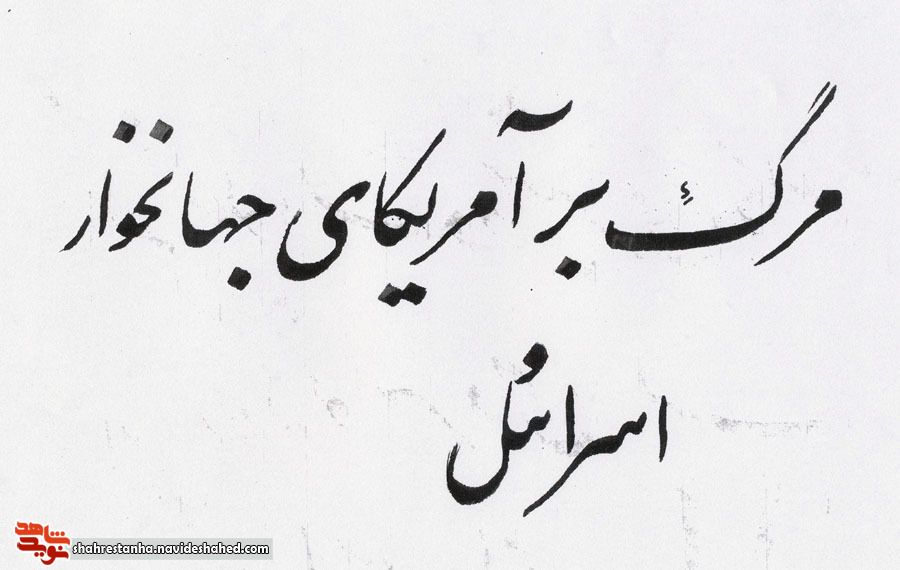 مرگ بر آمریکای جهانخوار
اسرائیل
نوید شاهد
shahrestanha.navideshahed.com